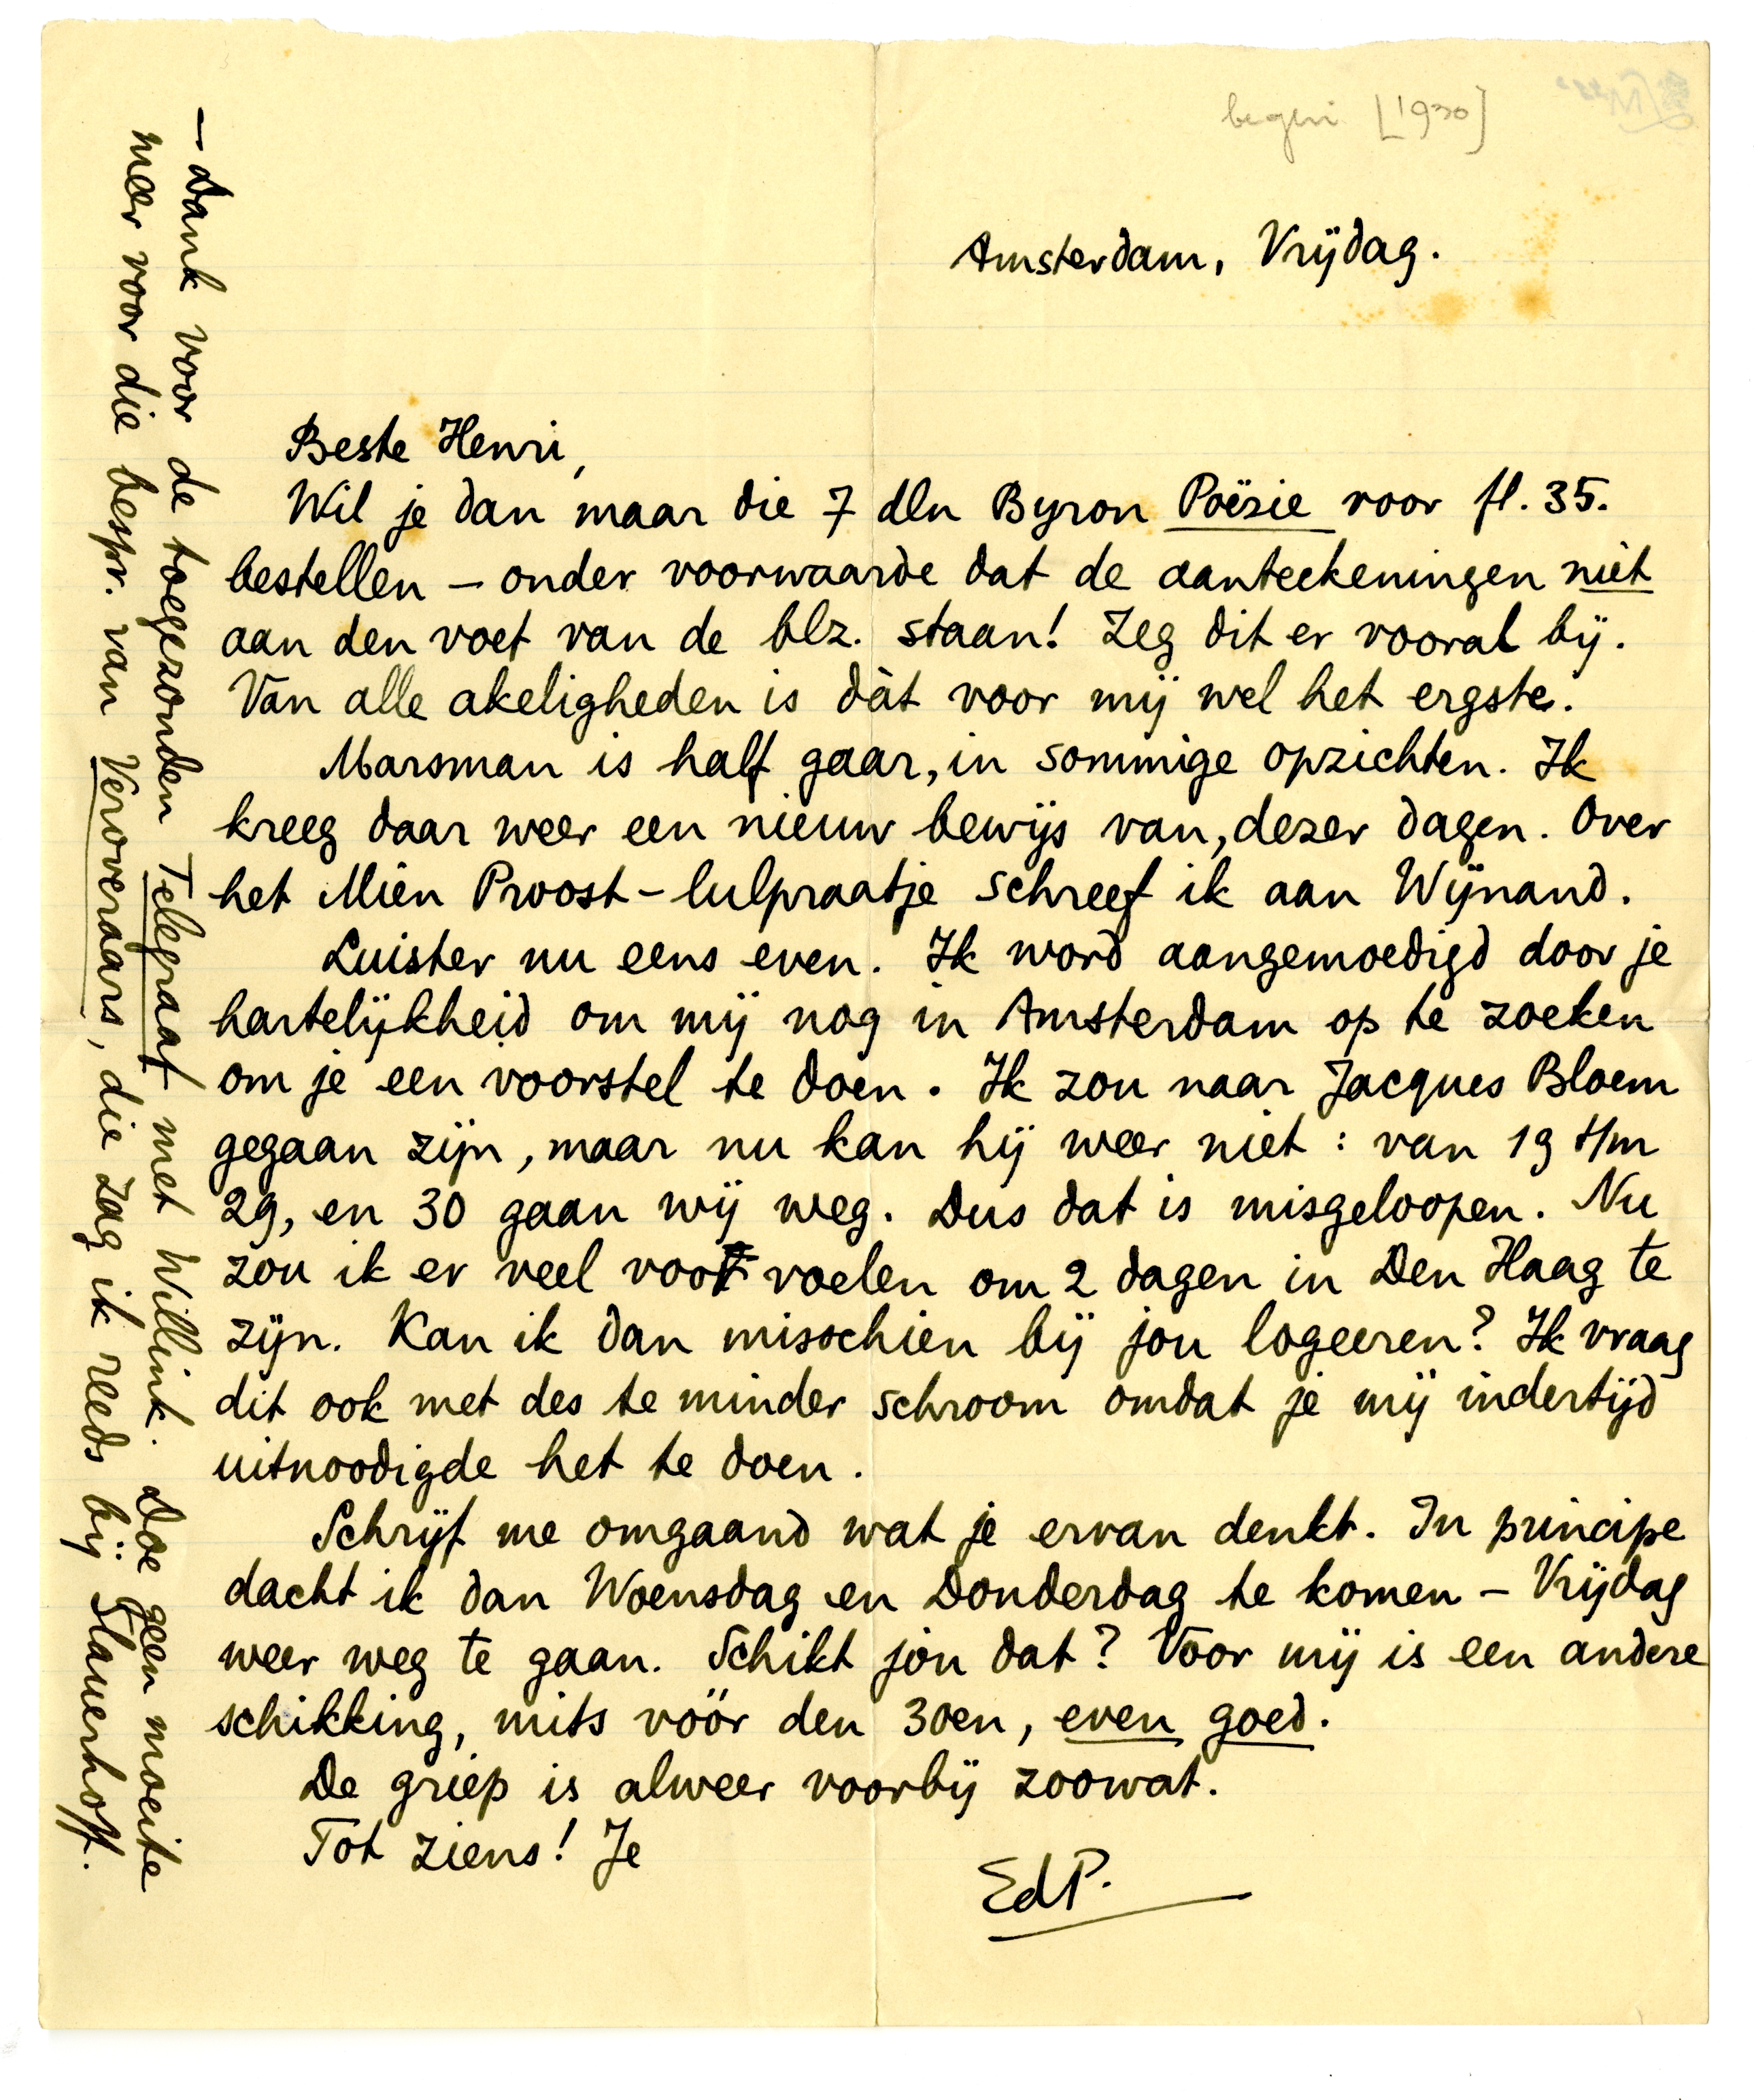 begin [1930]
Amsterdam, Vrijdag.
Beste Henri,
Wil je dan maar die 7 dln Byron Poëzie voor fl. 35.
bestellen – onder voorwaarde dat de aanteekeningen niet
aan den voet van de blz. staan! Zeg dit er vooral bij.
Van alle akeligheden is dàt voor mij wel het ergste.
Marsman is half gaar, in sommige opzichten. Ik
kreeg daar weer een nieuw bewijs van, dezer dagen. Over
het Mien Proost-lulpraatje schreef ik aan Wijnand.
Luister nu eens even. Ik word aangemoedigd door je
hartelijkheid om mij nog in Amsterdam op te zoeken
om je een voorstel te doen. Ik zou naar Jacques Bloem
gegaan zijn, maar nu kan hij weer niet: van 19 t/m
29, en 30 gaan wij weg. Dus dat is misgeloopen. Nu
zou ik er veel voor voelen om 2 dagen in Den Haag te
zijn. Kan ik dan misschien bij jou logeeren? Ik vraag
dit ook met des te minder schroom omdat je mij indertijd
uitnoodigde het te doen.
Schrijf me omgaand wat je ervan denkt. In principe
dacht ik dan Woensdag en Donderdag te komen – Vrijdag
weer weg te gaan. Schikt jou dat? Voor mij is een andere
schikking, mits vóór den 30en, even goed.
De griep is alweer voorbij zoowat.
Tot ziens! Je
EdP.
– Dank voor de toegezonden Telegraaf met Willink. Doe geen moeite
meer voor die bespr. van Veroveraars, die zag ik reeds bij Slauerhoff.